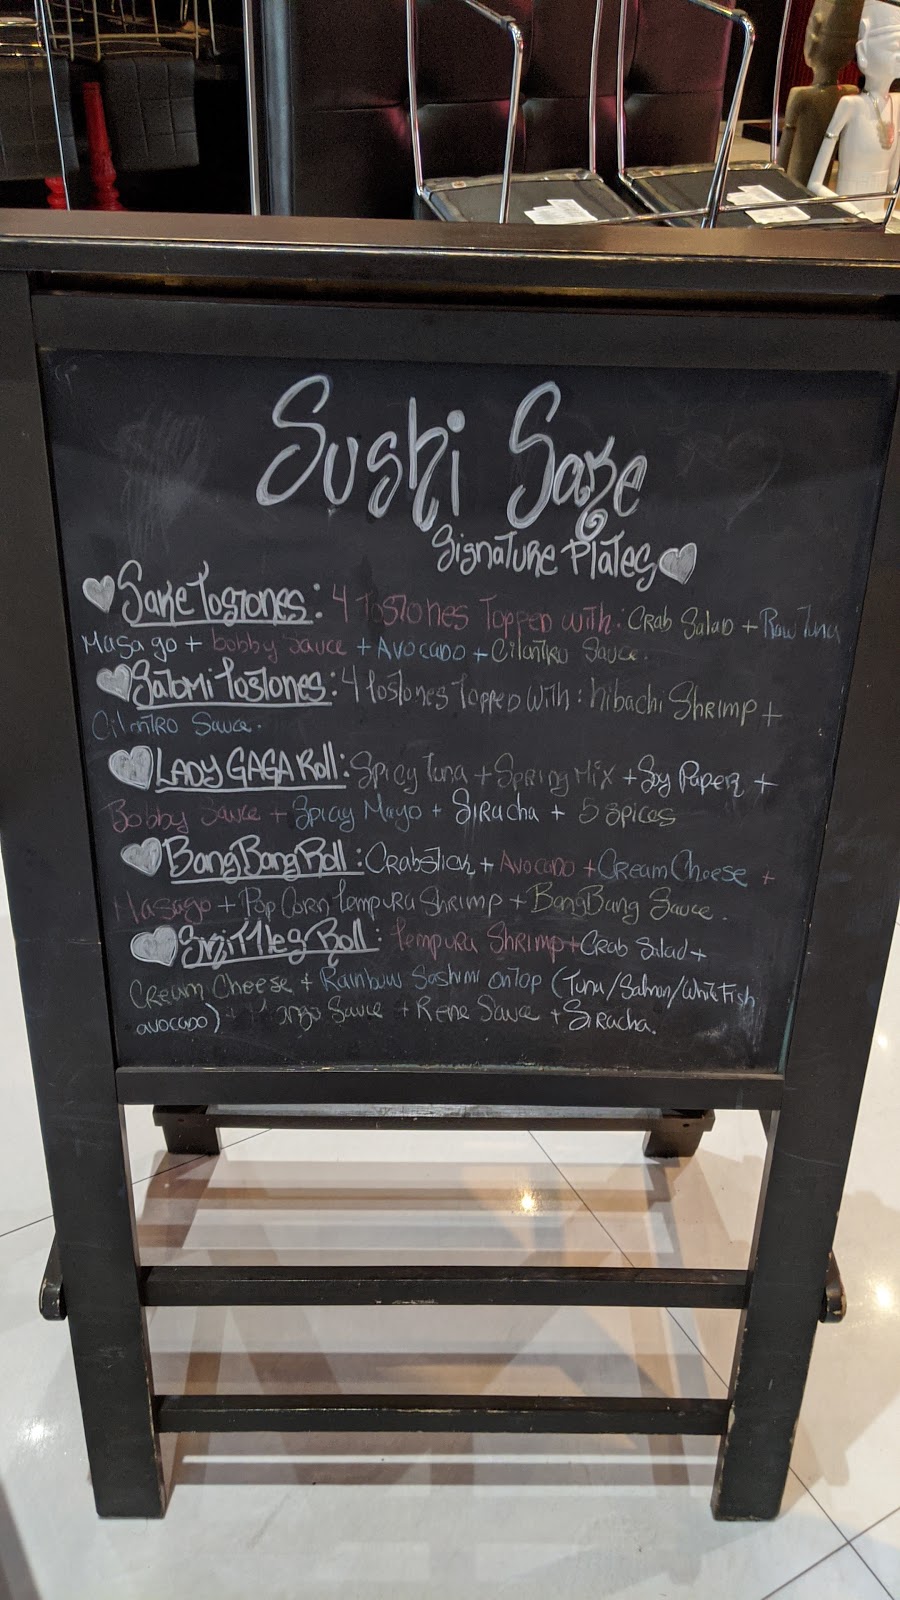 Sushi Sake
Signature Plates
Sake Tostones: 4 Tostones Topped with: Crab Salad + Raw Tuna
Masago + bobby Sauce + Avocado + Cilantro Sauce.
Satomi Tostones: 4 Tostones Topped with: hibachi Shrimp +
Cilantro Sauce.
LADY GAGA Roll: Spicy Tuna + Spring Mix + Soy Paper +
Bobby Sauce + Spicy Mayo + Siracha + 5 spices
Bang Bang Roll: Crabstick + Avocado + Cream Cheese +
Masago + Pop Corn Tempura Shrimp + Bang Bang Sauce.
Roll: Tempura Shrimp + Crab Salad +
Cream Cheese + Rainbow Sashimi on top (Tuna/Salmon/White Fish
avocado) + Mango Sauce + Rene Sauce + Siracha.